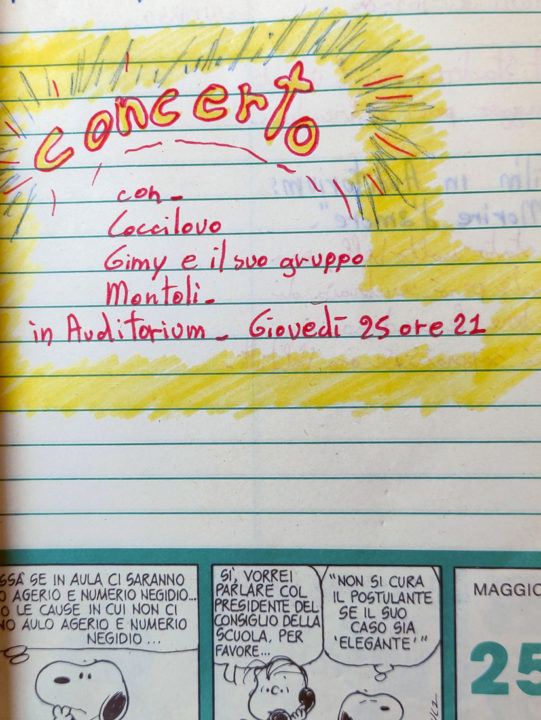 concerto
con -
Coccilovo
Gimy e il suo gruppo
Montoli -
in Auditorium - Giovedì 25 ore 21
SSÀ SE IN AULA CI SARANNO
O AGERIO E NUMERIO NEGIDIO...
O LE CAUSE IN CUI NON CI
NO AULO AGERIO E NUMERIO
NEGIDIO...
SÌ, VORREI
PARLARE COL
PRESIDENTE DEL
CONSIGLIO DELLA
SCUOLA, PER
FAVORE...
"NON SI CURA
IL POSTULANTE
SE IL SUO
CASO SIA
'ELEGANTE'"
MAGGIO
25